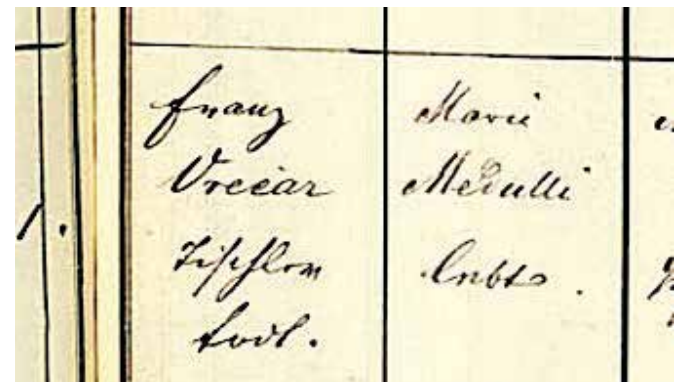 1.
Franz
Vrečar
Tischler
todt.
Marie
Medulli
lebt.